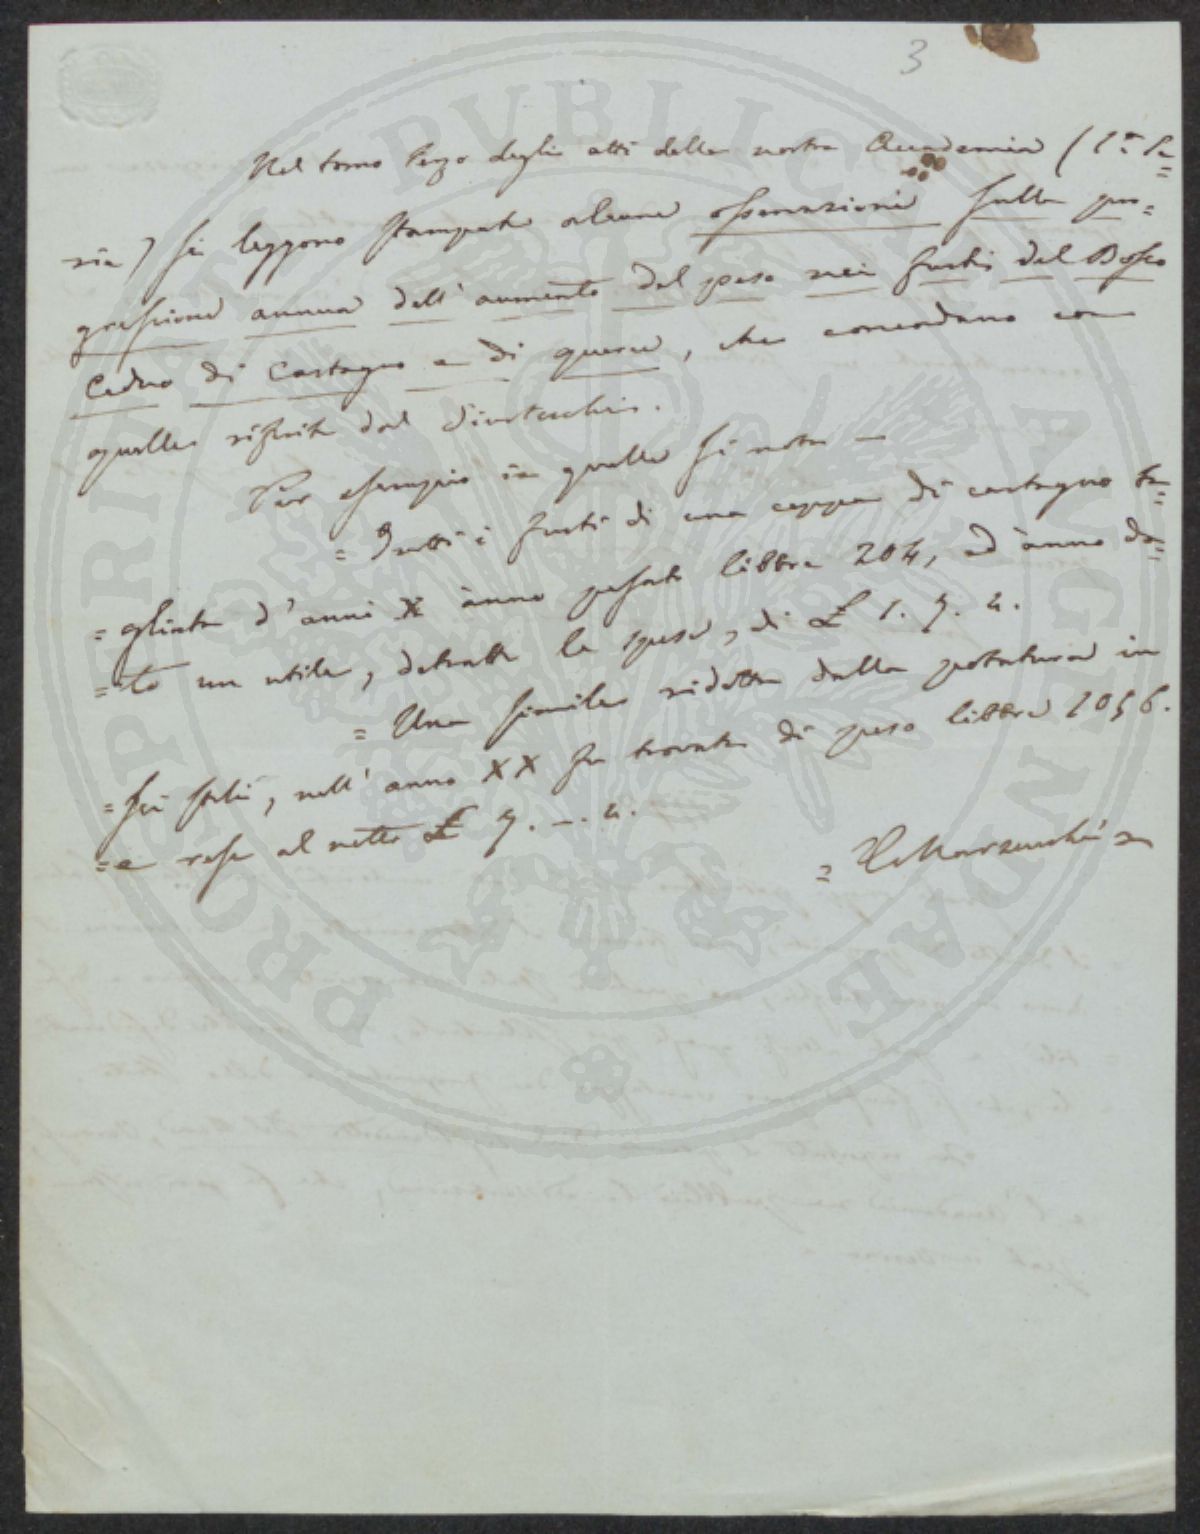 3
Nel tomo terzo degli atti della nostra Accademia (1.a Se=
rie) si leggono stampate alcune osservazioni sulla pro=
gressione annua dell'aumento del peso nei fusti del Bosco
Ceduo di Castagno e di querce, che concordano con
quelle riferite dal
Per esempio in quelle si nota —
= Tutti i fusti di una ceppa di castagno ta=
=gliata d'anni X ànno pesato libbre 204, ed ànno da=
=to un utile, detratte le spese, di £ 1. 7. 4.
= Una simile ridotta dalla potatura in
=sei steli, nell'anno XX fu trovata di peso libbre 1056.
=e rese al netto £ 7. –. 4.
PROSPERITATI PUBLICAE AUGENDAE